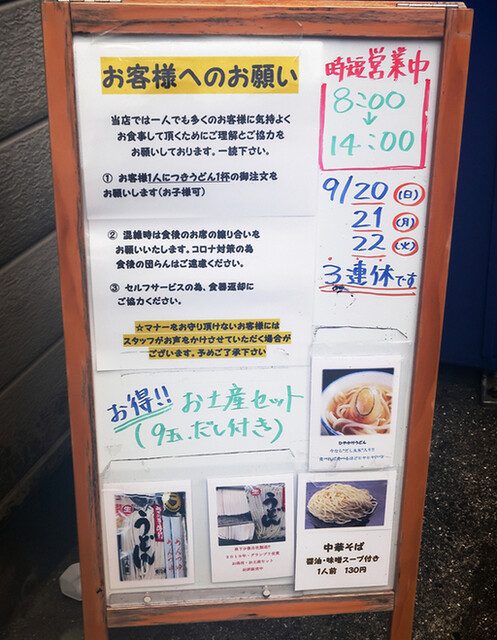 お客様へのお願い
当店では一人でも多くのお客様に気持よく
お食事して頂くためにご理解とご協力を
お願いしております。一読下さい。
① お客様1人につきうどん1杯の御注文を
お願いします(お子様可)
② 混雑時は食後のお席の譲り合いを
お願いいたします。コロナ対策の為
食後の団らんはご遠慮ください。
③ セルフサービスの為、食器返却に
ご協力ください。
☆マナーをお守り頂けないお客様には
スタッフがお声をかけさせていただく場合が
ございます。予めご了承下さい
時短営業中
8:00
↓
14:00
9/20(日)
21(月)
22(火)
3連休です
お得!! お土産セット
(9玉.だし付き)
ひやかけうどん
生
うどん
うどん
中華そば
醤油・味噌スープ付き
1人前 130円